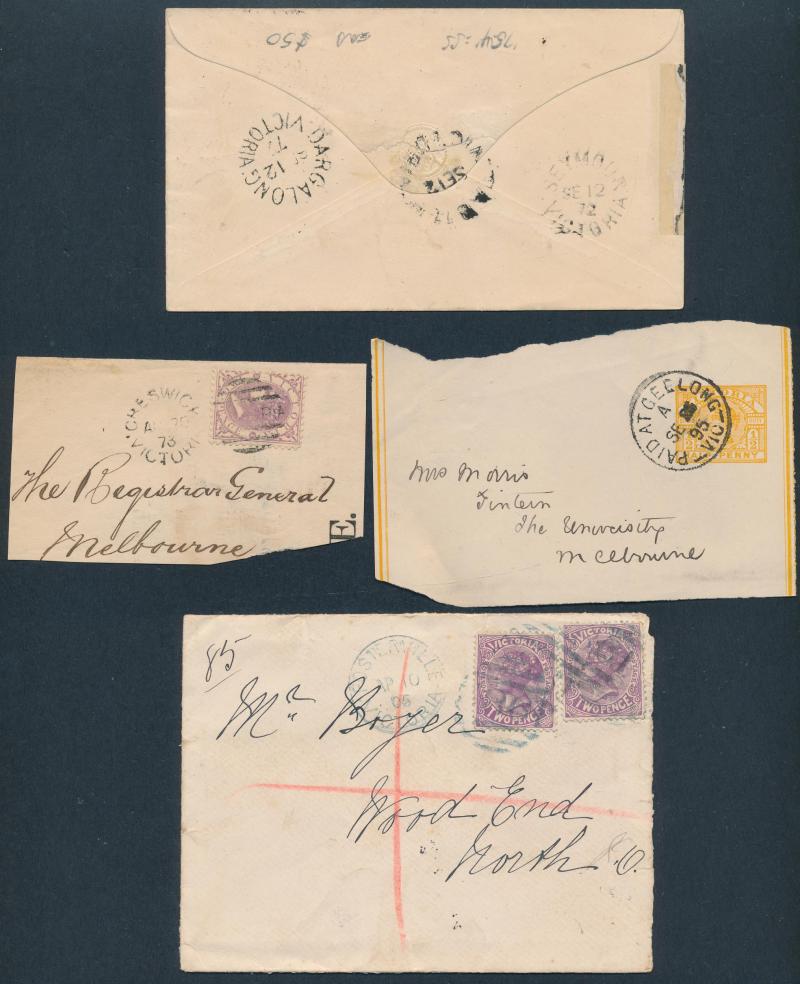 $50
DARGALONG
12
VICTORIA
SE 12
SEYMOUR
SE 12
72
VICTORIA
CRESWICK
78
VICTORI
The Registrar General
Melbourne
E.
PAID AT GEELONG VICT
A
SE
95
½
Mrs Morris
Fintern
The University
Melbourne
85
AP 10
05
VICTORIA
VICTORIA
TWO PENCE
VICTORIA
TWO PENCE
Mr Boyer
Wood End
North